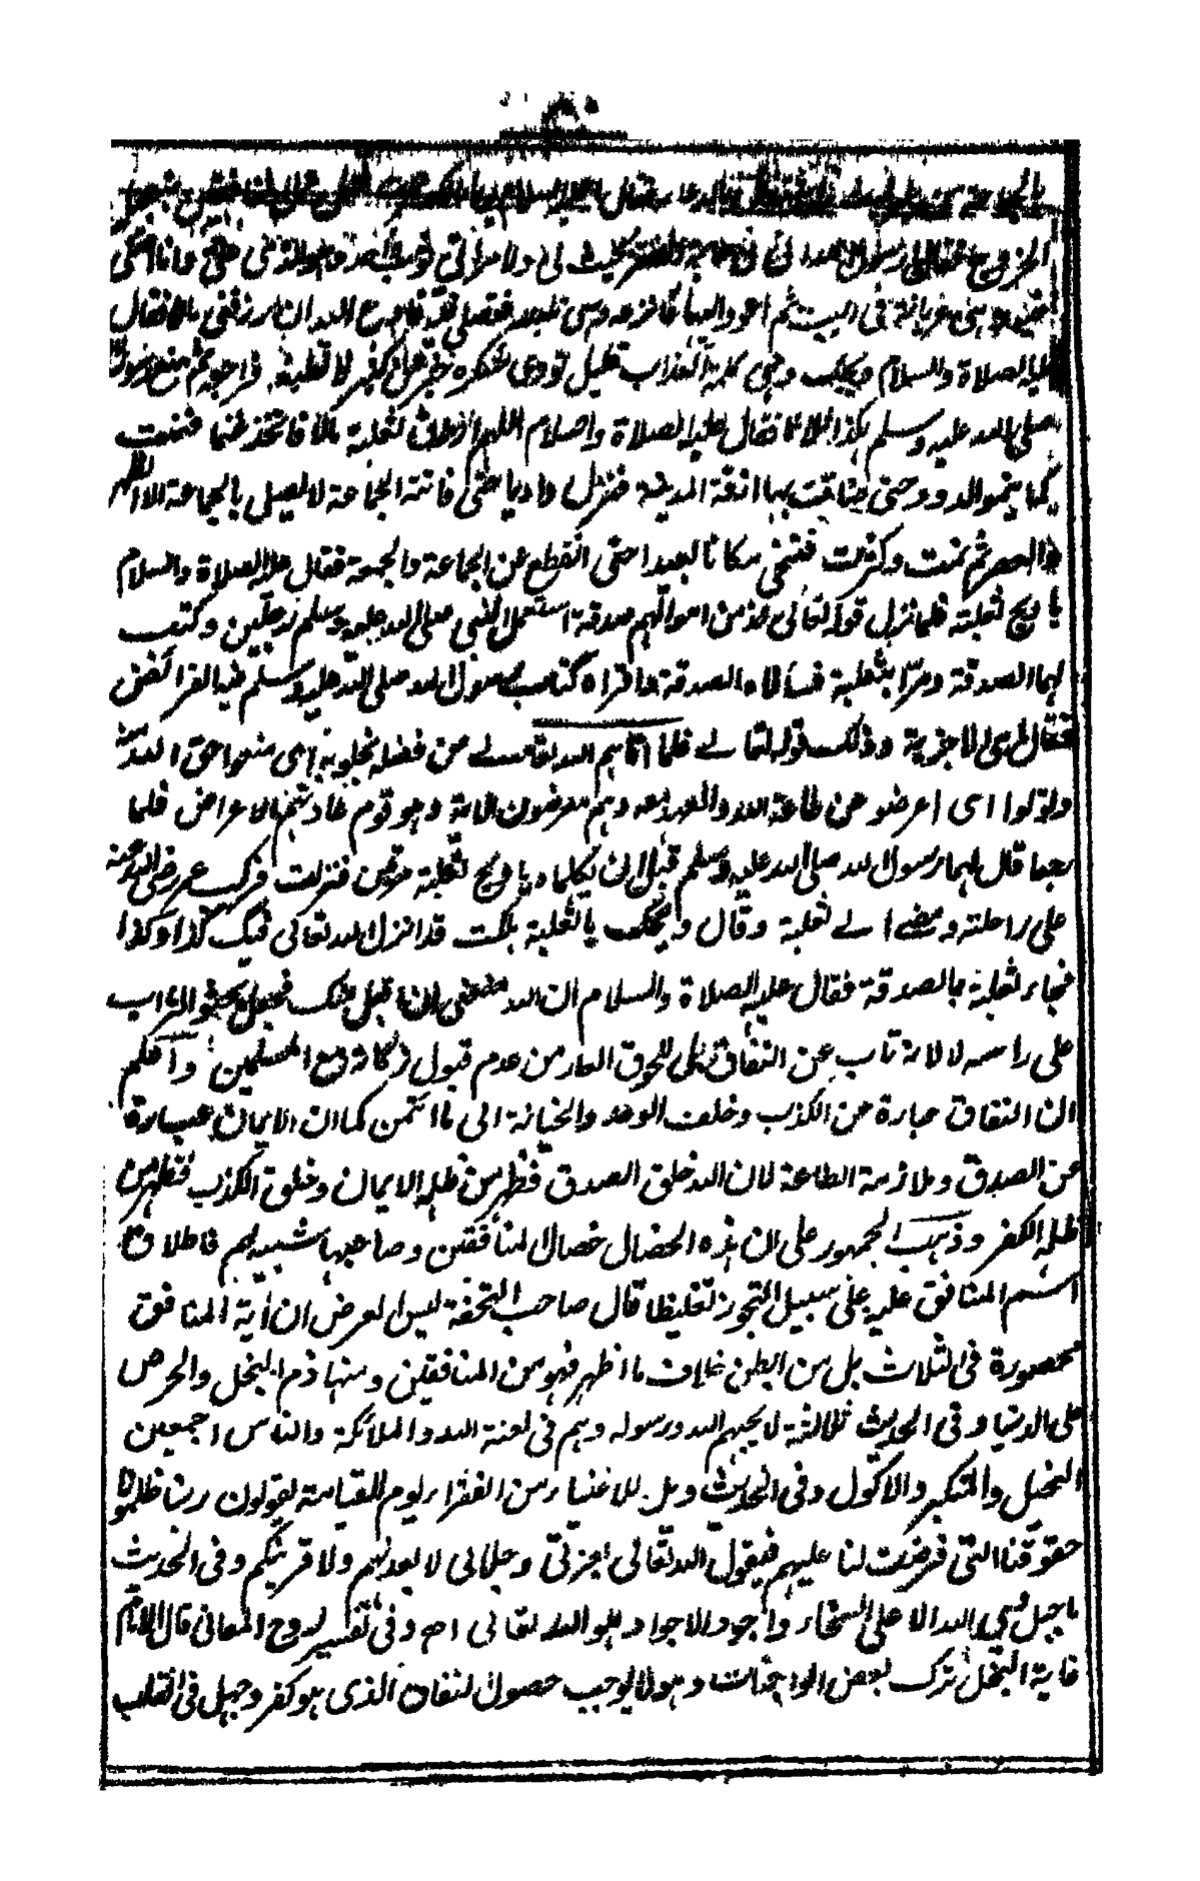 الخروج فقال يا رسول الله اني في بحيث لي ولا مراتي ثوب
عريانة في البيت ثم اعود اليها فانزعه وهي تلبسه فتصلي فيه فادع الله ان يرزقني مالا فقال
عليه الصلاة والسلام ويحك قليل تودي شكره خير من كثير لا تطيقه فراجعه
صلى الله عليه وسلم فقال عليه الصلاة والسلام اللهم ارزق ثعلبة مالا فاتخذ غنما فنمت
كما ينمو الدود حتى ضاقت بها ازقة المدينة فنزل واديا حتى فاتته الجماعة لا يصلي بالجماعة الا الظهر
والعصر ثم نمت وكثرت فتنحى مكانا بعيدا حتى انقطع عن الجماعة والجمعة فقال عليه الصلاة والسلام
يا ويح ثعلبة فلما نزل قوله تعالى خذ من اموالهم صدقة استعمل النبي صلى الله عليه وسلم رجلين وكتب
لهما الصدقة ومرا بثعلبة فسالاه الصدقة فاقراه كتاب رسول الله صلى الله عليه وسلم فيه الفرائض
فقال ما هي الا جزية وذلك قوله تعالى فلما اتاهم الله تعالى من فضله بخلوا به اي منعوا حق الله منه
وتولوا اي اعرضو عن طاعة الله والعهد معه وهم معرضون اى وهو قوم عادتهم الاعراض فلما
رجعا قال لهما رسول الله صلى الله عليه وسلم قبل ان يكلماه يا ويح ثعلبة مرتين فنزلت فركب عمر رضى الله عنه
على راحلته ومضى الى ثعلبة وقال ويحك يا ثعلبة هلكت قد انزل الله تعالى فيك كذا وكذا
فجاء ثعلبة بالصدقة فقال عليه الصلاة والسلام ان الله منعنى ان اقبل منك فجعل يحثو التراب
على راسه لا لانه تاب عن النفاق بل للحوق العار من عدم قبول زكاته مع المسلمين واعلم
ان النفاق عبارة عن الكذب وخلف الوعد والخيانة الى ما ائتمن كما ان الايمان عبارة
عن الصدق وملازمة الطاعة لان الله خلق الصدق فظهر من ظله الايمان وخلق الكذب فظهر من
ظله الكفر وذهب الجمهور على ان هذه الخصال خصال المنافقين وصاحبها شبيه لهم فاطلاق
اسم المنافق عليه على سبيل التجوز تغليظا قال صاحب التحفة ليس الغرض ان آية المنافق
محصورة في الثلاث بل من ابطن خلاف ما اظهر فهو من المنافقين ومنها ذم البخل والحرص
على الدنيا وفى الحديث ثلاثة لا يحبهم الله ورسوله وهم في لعنة الله والملائكة والناس اجمعين
البخيل والمتكبر والاكول وفى الحديث ويل للاغنياء من الفقراء يوم القيامة يقولون ربنا ظلمونا
حقوقنا التى فرضت لنا عليهم فيقول الله تعالى بعزتي وجلالي لابعدنهم ولاقربنكم وفى الحديث
ما جبل ولي الله الا على السخاء واجود الاجواد هو الله تعالى اه وفى تفسير روح المعانى قال الامام
غاية البخل ترك بعض الواجبات وهو لا يوجب حصول النفاق الذى هو كفر وجهل فى القلب